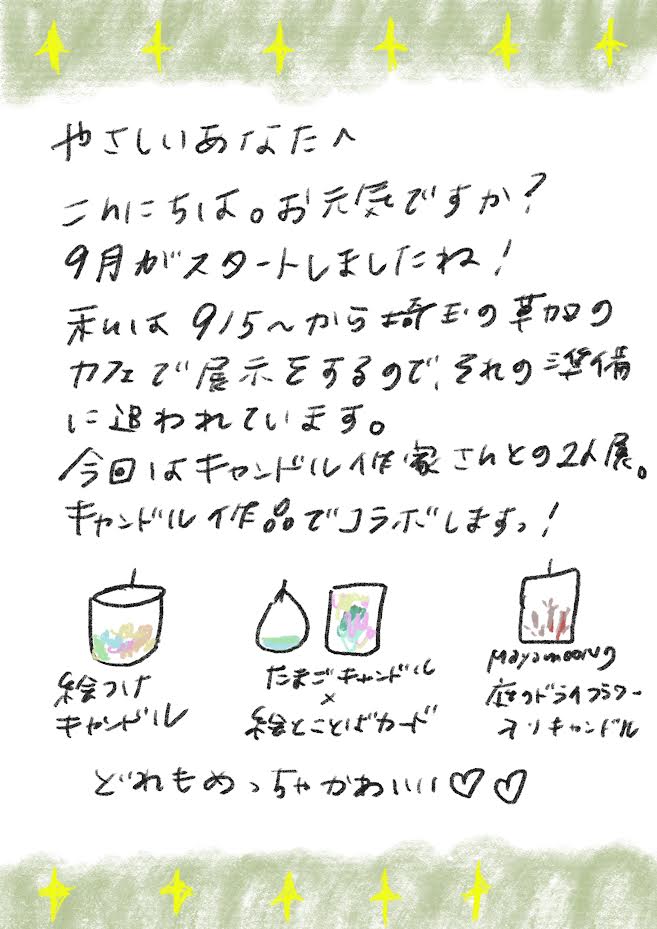 やさしいあなたへ
こんにちは。お元気ですか?
9月がスタートしましたね!
私は9/5〜から埼玉の草加の
カフェで展示をするので、それの準備
に追われています。
今回はキャンドル作家さんとの2人展。
キャンドル作品でコラボしますっ!
絵つけ
キャンドル
たまごキャンドル
×
絵とことばカード
Mayamoong
庭のドライフラワー
入りキャンドル
どれもめっちゃかわいい♡♡